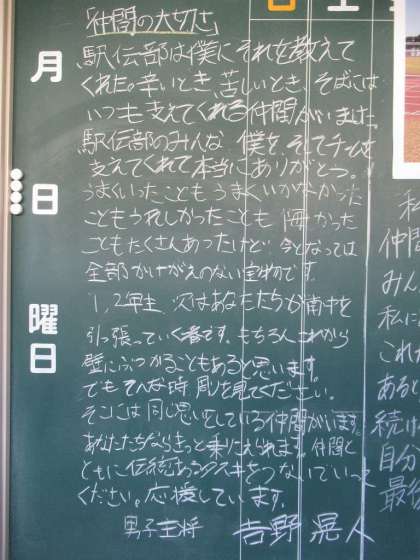 月
日
曜
日
「仲間の大切さ」
駅伝部は僕にそれを教えて
くれた。辛いとき、苦しいとき、そばには
いつも支えてくれる仲間がいました。
駅伝部のみんな、僕を、そしてチームを
支えてくれて本当にありがとう。
うまくいったこともうまくいかなかった
こともうれしかったことも悔かった
こともたくさんあったけど今となっては
全部かけがえのない宝物です。
1,2年生、次はあなたたちが南中を
引っ張っていく番です。もちろんこれから
壁にぶつかることもあると思います。
でもそんな時周りを見てください。
そこには同じ思いをしている仲間がいます。
あなたたちならきっと乗りこえられます。仲間と
ともに伝統あるタスキをつないでいって
ください。応援しています。
男子主将 吉野 晃人
私
仲間
みん
私に
これ
ある
続け
自分
最後